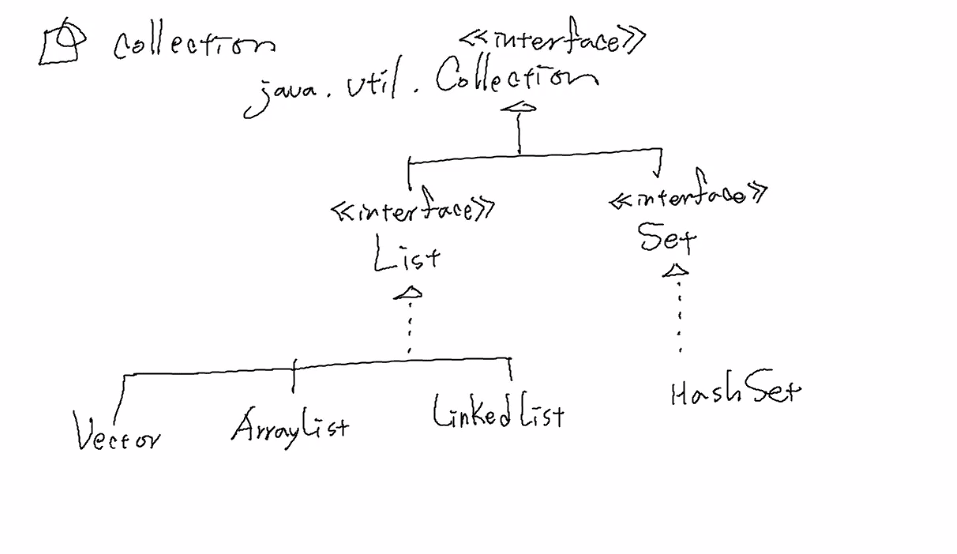 Collection
<<interface>>
java.util.Collection
<<interface>>
<<interface>>
List
Set
Vector
ArrayList
LinkedList
HashSet